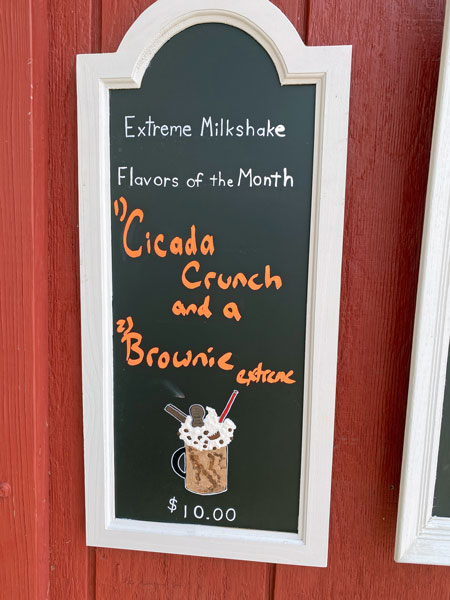 Extreme Milkshake
Flavors of the Month
1) Cicada
Crunch
and a
2) Brownie extreme
$10.00